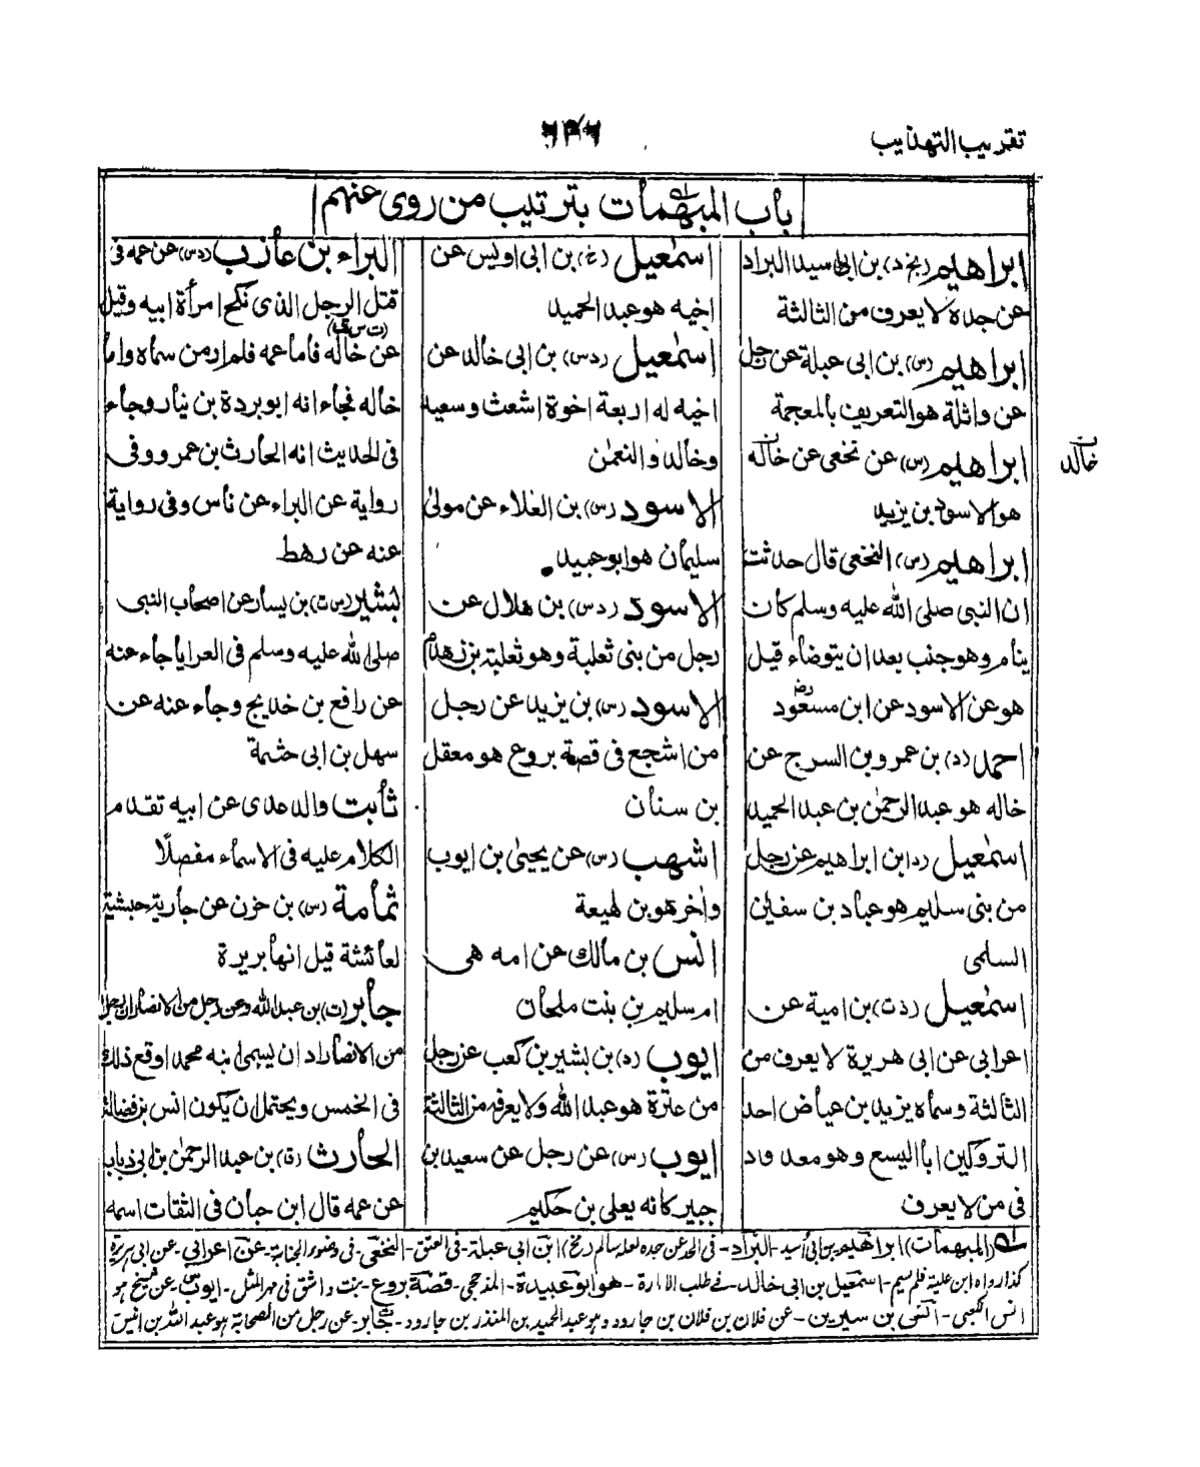 تقريب التهذيب
باب المبهمات بترتيب من روى عنهم
ابراهيم (بخ د) بن ابي اسيد البراد
عن جده لا يعرف من الثالثة
ابراهيم (س) بن ابى عبلة عن رجل
عن واثلة هو التعريف بالمعجمة
ابراهيم (س) عن نخعى عن خاله
خالد
هو الاسود بن يزيد
ابراهيم (س) النخعى قال حدثت
ان النبى صلى الله عليه وسلم كان
ينام وهو جنب بعد ان يتوضاء قيل
هو عن الاسود عن ابن مسعود رض
احمد (د) بن عمرو بن السرج عن
خاله هو عبد الرحمٰن بن عبد الحميد
اسمٰعيل (د) ابن ابراهيم عن رجل
من بنى سليم هو عباد بن سفين
السلمى
اسمٰعيل (د ت) بن امية عن
اعرابى عن ابى هريرة لا يعرف من
الثالثة وسماه يزيد بن عياض احد
التروكين ابا اليسع وهو معدود
فى من لا يعرف
اسمٰعيل (خ) بن ابى اويس عن
اخيه هو عبد الحميد
اسمٰعيل (د س) بن ابى خالد عن
اخيه له اربعة اخوة اشعث وسعيد
وخالد والنعمٰن
الاسود (س) بن العلاء عن مولى
سليمان هو ابو عبيد
الاسود (د س) بن هلال عن
رجل من بنى ثعلبة وهو ثعلبة بن زهدم
الاسود (س) بن يزيد عن رجل
من اشجع فى قصة بروع هو معقل
بن سنان
اشهب (س) عن يحيىٰ بن ايوب
واٰخر هو بن لهيعة
انس بن مالك عن امه هى
ام سليم بنت ملحان
ايوب (د) بن بشير بن كعب عن رجل
من عنزة هو عبد الله ولا يعرف من الثالثة
ايوب (س) عن رجل عن سعيد بن
جبير كانه يعلى بن حكيم
البراء بن عازب (د س) عن عمه فى
قتل الرجل الذى نكح امرأة ابيه وقيل
عن خاله (ت س ق) فاما عمه فلم ار من سماه واما
خاله فجاء انه ابو بردة بن نيار وجاء
فى الحديث انه الحارث بن عمرو وفى
رواية عن البراء عن ناس وفى رواية
عنه عن رهط
بشير (س ت) بن يسار عن اصحاب النبى
صلى الله عليه وسلم فى العرايا جاء عنه
عن رافع بن خديج وجاء عنه عن
سهل بن ابى حثمة
ثابت والد عدى عن ابيه تقدم
الكلام عليه فى الاسماء مفصلًا
ثمامة (س) بن حزن عن جارية حبشية
لعائشة قيل انها بريرة
جابر (ت) بن عبد الله وعن رجل من الانصار ان رجلا
من الانصار اراد ان يسمى ابنه محمدا وقع ذلك
فى الخمس ويحتمل ان يكون انس بن فضالة
الحارث (ق) بن عبد الرحمٰن بن ابى ذباب
عن عمه قال ابن حبان فى الثقات اسمه
(المبهمات) ابراهيم بن ابى أسيد - البراد - فى الحد عن جده لعله سالم (بخ) ابن ابى عبلة - فى العتق - النخعى - فى وضوء الجنابة - عن اعرابى - عن ابى هريرة
كذا رواه ابن علية فلم يسم - اسمعيل بن ابى خالد - فى طلب الامارة - هو ابو عبيدة - المذحجى - قصة بروع - بنت واشق فى مهر المثل - ايوب - عن شيخ هو
انس الكعبى - انس بن سيرين - عن فلان بن فلان بن جارود وهو عبد الحميد بن المنذر بن جارود - جابر - عن رجل من الصحابة هو عبد الله بن انيس